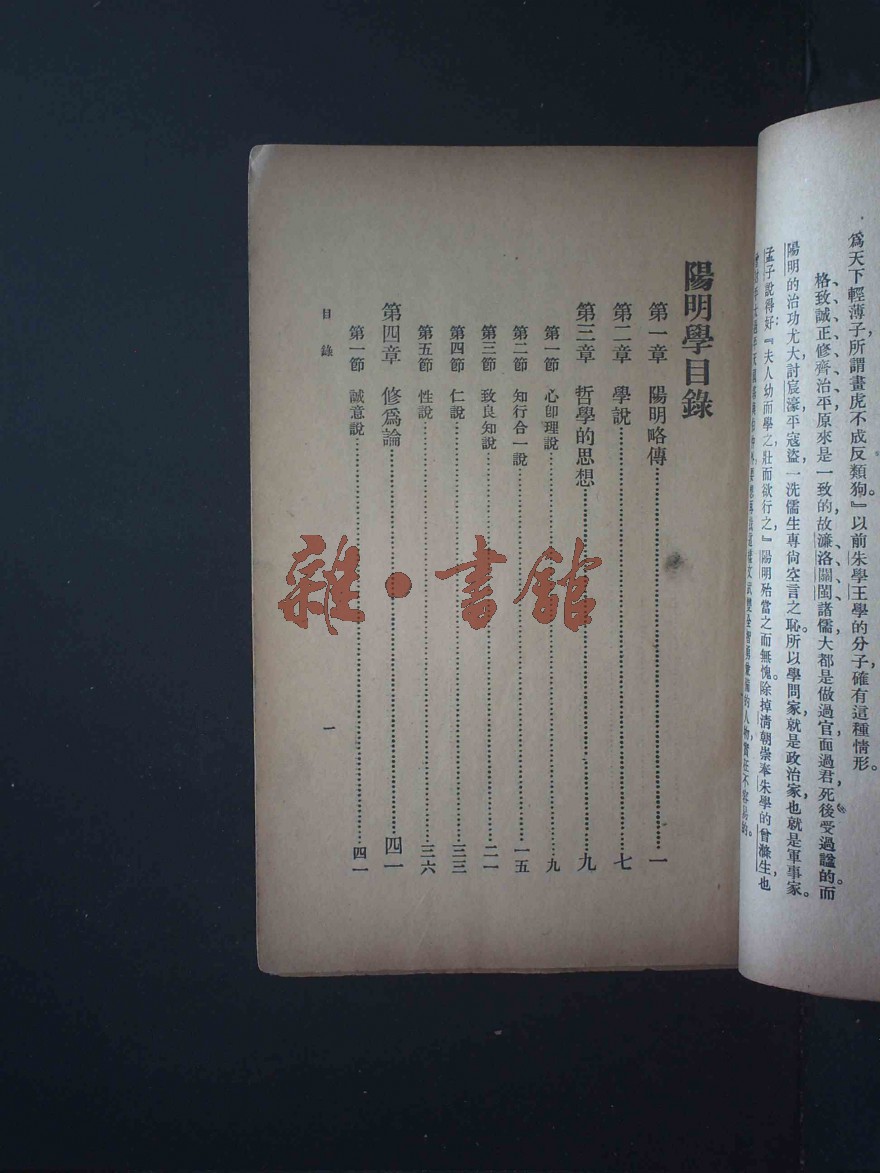 爲天下輕薄子所謂畫虎不成反類狗』以前朱學王學的分子確有這種情形。
格、致、誠、正、修、齊、治、平、原來是一致的,故濂、洛、關、閩諸儒,大都是做過官,面過君,死後受過諡的,而
陽明的治功尤大,討宸濠,平寇盜,一洗儒生專尙空言之恥。所以學問家就是政治家,也就是軍事家。
孟子說得好:『夫人幼而學之,壯而欲行之』陽明殆當之而無愧。除掉清朝崇奉朱學的曾滌生,也
的人物,實在不容易的。
陽明學目錄
第一章 陽明略傳……一
第二章 學說……七
第三章 哲學的思想……九
第一節 心卽理說……九
第二節 知行合一說……一五
第三節 致良知說……二一
第四節 仁說……三三
第五節 性說……三六
第四章 修爲論……四一
第一節 誠意說……四一
目錄 一
雜·書館